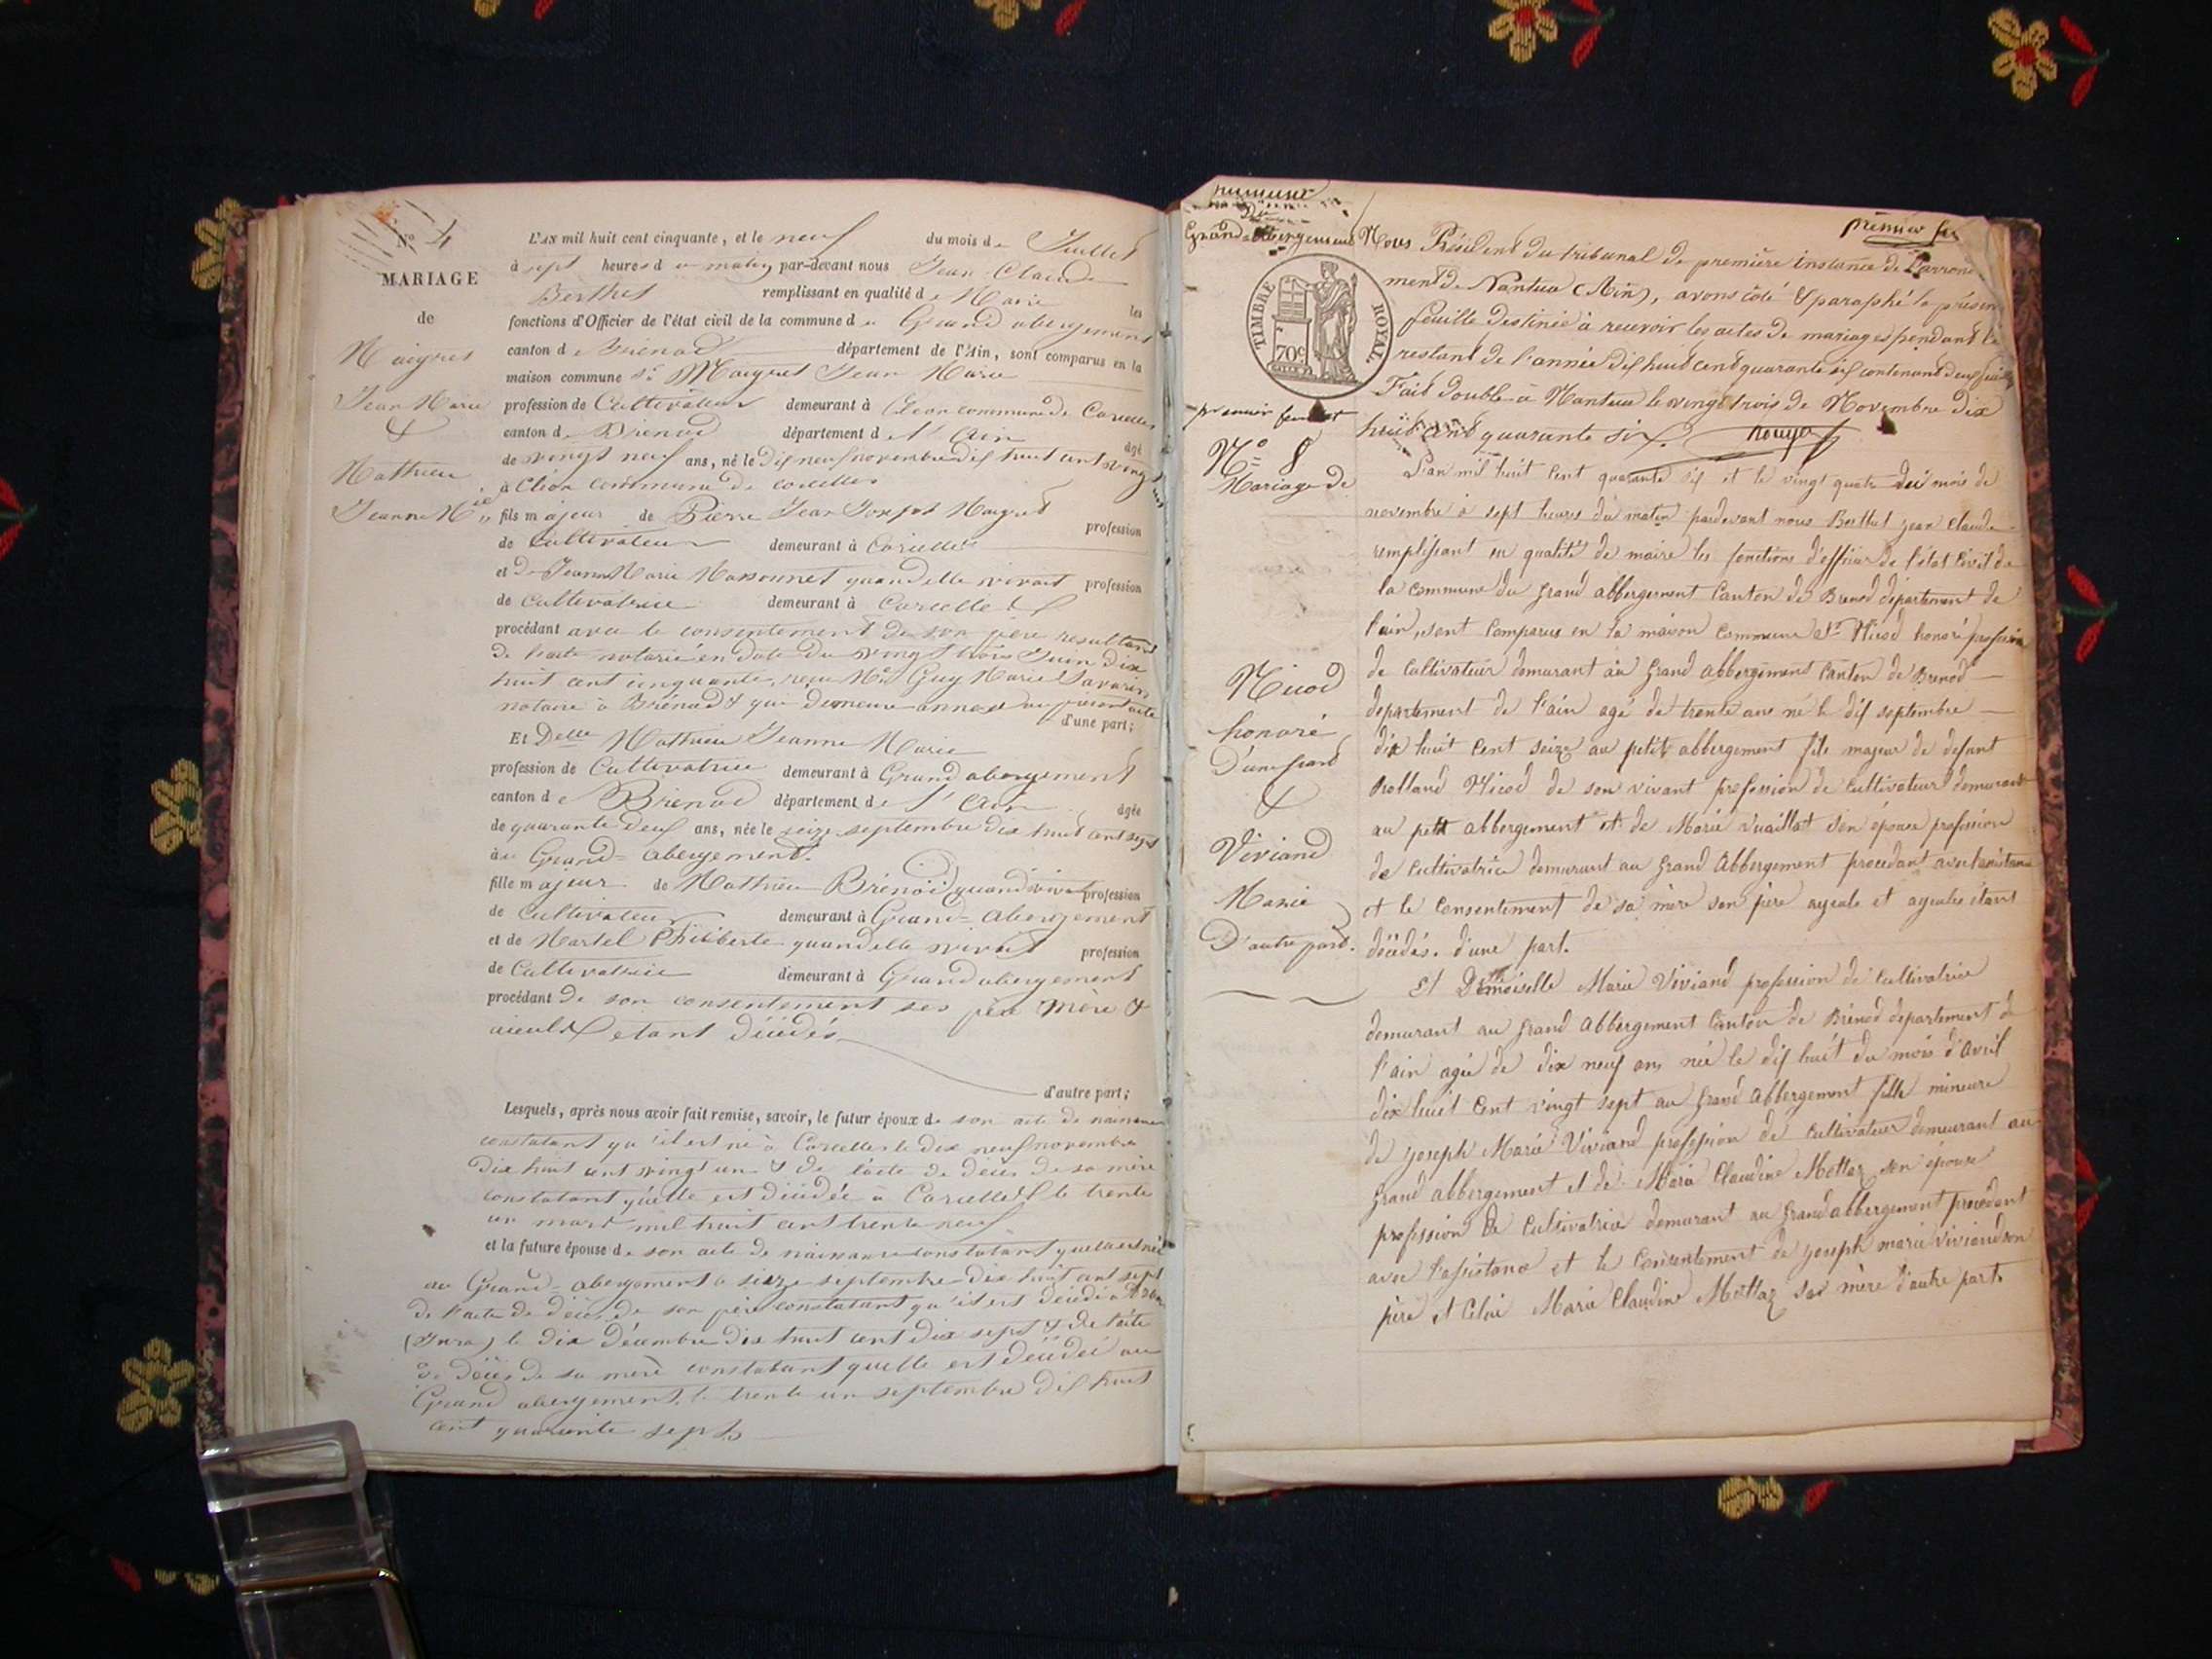 Nº 4
MARIAGE
de
Maigret
Jean Marie
&
Mathieu
Jeanne Mie
L'AN mil huit cent cinquante, et le neuf du mois de Juillet
à sept heures du matin par-devant nous Jean Claude
Berthet remplissant en qualité de Maire les
fonctions d'Officier de l'état civil de la commune du Grand abergement
canton de Brénod département de l'Ain, sont comparus en la
maison commune Sr Maigret Jean Marie
profession de Cultivateur demeurant à Cléon commune de Corcelles
canton de Brénod département de l'Ain âgé
de vingt neuf ans, né le dix neuf novembre dix huit cent vingt un
à Cléon commune de Corcelles
fils majeur de Pierre Jean Joseph Maigret profession
de Cultivateur demeurant à Corcelles
et de Jeanne Marie quand elle vivait profession
de cultivatrice demeurant à Corcelles
procédant avec le consentement de son père resultant
de l'acte notarié en date du vingt trois Juin dix
huit cent cinquante, reçu Me Guy Marie Savarin
notaire à Brénod & qui demeure annexé au présent acte
d'une part;
Et Delle Mathieu Jeanne Marie
profession de Cultivatrice demeurant à Grand abergement
canton de Brénod département de l'Ain âgée
de quarante deux ans, née le seize septembre dix huit cent sept
au Grand-abergement.
fille majeur de Mathieu quand vivait profession
de Cultivateur demeurant à Grand-abergement
et de Martel Philiberte quand elle vivait profession
de Cultivatrice demeurant à Grand abergement
procédant de son consentement ses père mère &
aieuls etant décédés
d'autre part;
Lesquels, après nous avoir fait remise, savoir, le futur époux de son acte de naissance
constatant qu'il est né à Corcelles le dix neuf novembre
dix huit cent vingt un & de l'acte de décès de sa mère
constatant qu'elle est décédée à Corcelles le trente
un mars mil huit cent trente neuf
et la future épouse de son acte de naissance constatant qu'elle est née
au Grand-abergement le seize septembre dix huit cent sept
de l'acte de décès de son père constatant qu'il est décédé à
(Jura) le dix Décembre dix huit cent dix sept & de l'acte
de décès de sa mère constatant quelle est décédée au
Grand abergement le trente un septembre dix huit
cent quarante sept
Du
Grand-abergement
premier feu
Nous Président du tribunal de première instance de l'arrondi
ment de Nantua (Ain), avons côté & paraphé la présen
feuille destinée à recevoir les actes de mariages pendant le
restant de l'année dix huit cent quarante six contenant deux feuil
Fait double à Nantua le vingt trois de Novembre dix
huit cent quarante six
TIMBRE ROYAL.
70c
premier feuillet
Nº 8
Mariage de
Nicod
honoré
D'une part
&
Viviand
Marie
D'autre part.
L'an mil huit cent quarante six et le vingt quatre du mois de
novembre à sept heures du matin pardevant nous Berthet jean Claude
remplissant en qualité de maire les fonctions d'officier de l'état civil de
la commune du grand abbergement Canton de Brenod département de
l'ain, sont comparus en la maison commune Sr Nicod honoré profession
de cultivateur demurant au grand abbergement canton de Brenod
département de l'ain agé de trente ans né le dix septembre
dix huit cent seize au petit abbergement fils majeur de defunt
Rolland Nicod de son vivant profession de cultivateur demurant
au petit abbergement et de Marie Vuaillat son épouse profession
de cultivatrice demurant au grand Abbergement procedant avec l'assistance
et le consentement de sa mère son père ayeuls et ayeules étant
décédés. d'une part.
Et Demoiselle Marie Viviand profession de cultivatrice
demurant au grand Abbergement Canton de Brénod departement de
l'ain agée de dix neuf ans née le dix huit du mois d'avril
dix huit cent vingt sept au grand Abbergement fille mineure
de joseph Marie Viviand profession de cultivateur demeurant au
grand abbergement et de Marie Claudine Mottaz son épouse
profession de cultivatrice demurant au grand abbergement procedant
avec l'assistance et le consentement de joseph marie Viviand son
père et celui Marie Claudine Mottaz sa mère d'autre part.